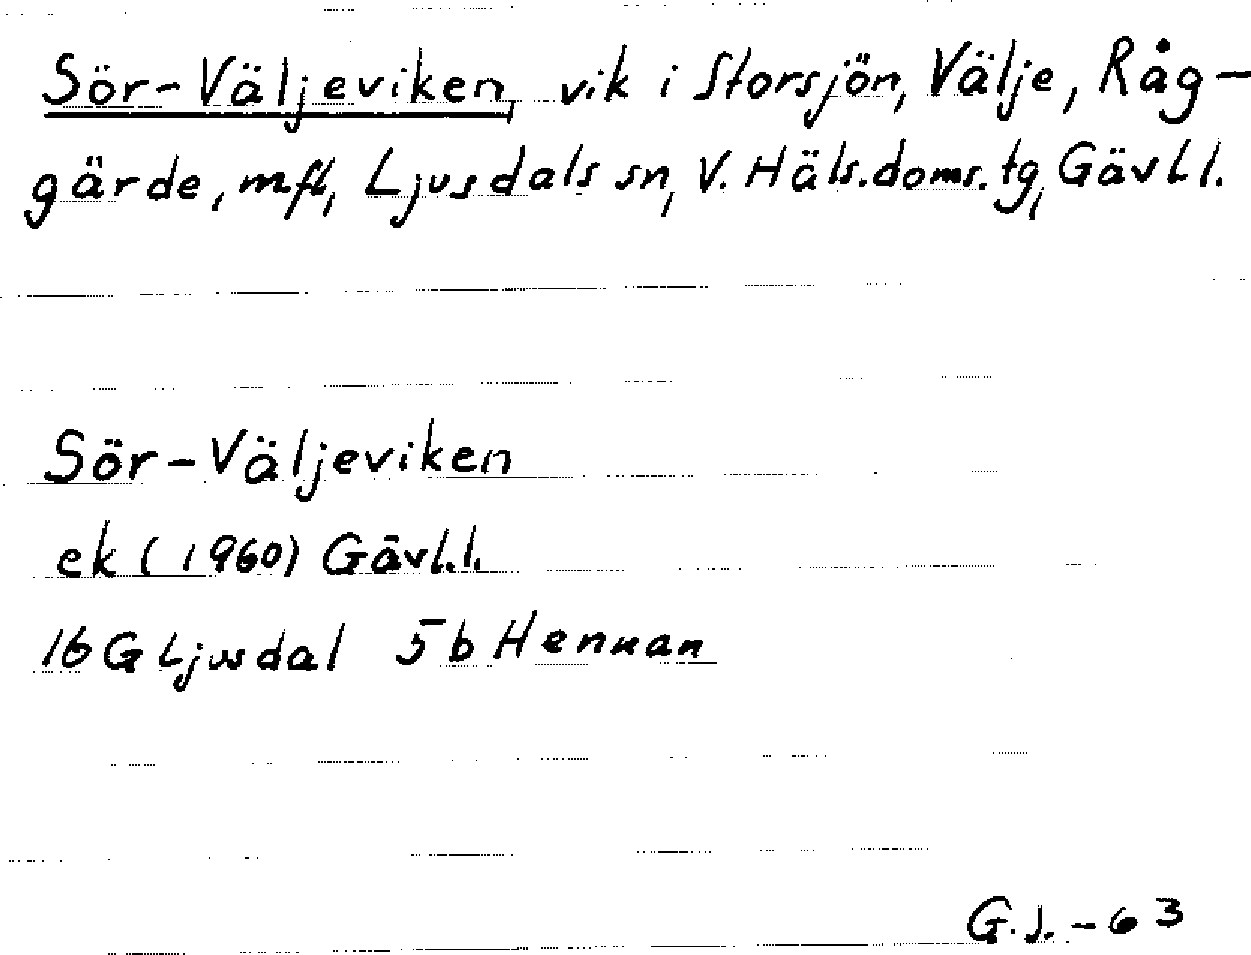 Sör-Väljeviken, vik i Storsjön, Välje, Råg-
gärde, mfl, Ljusdals sn, V. Häls.doms.tg, Gävl l.
Sör-Väljeviken
ek (1960) Gävl.l.
16G Ljusdal 5b Hennan
G.J.-63